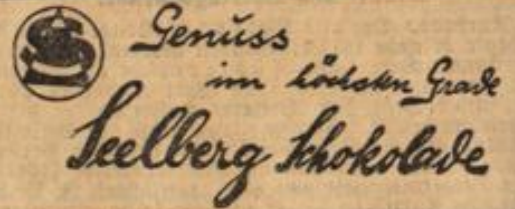 Genuss
im höchsten Grade
Seelberg Schokolade